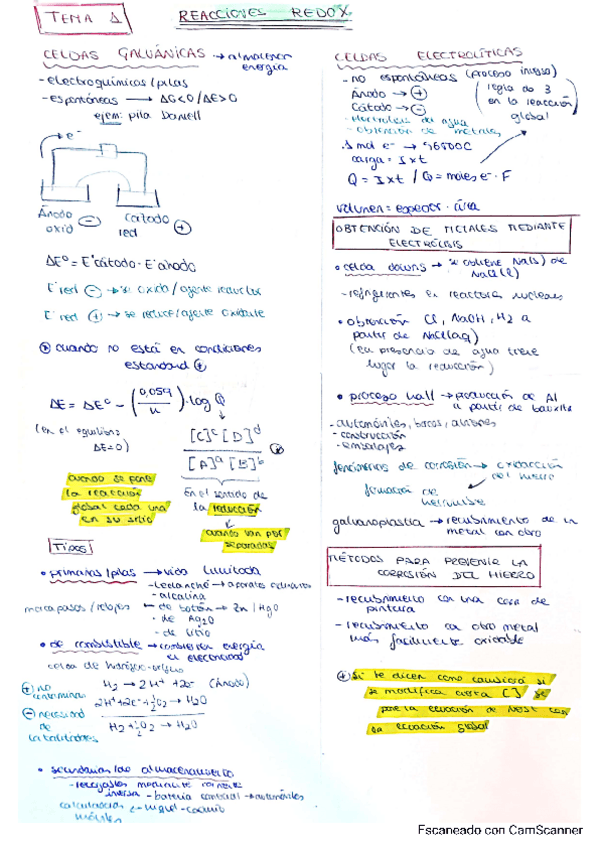 TEMA 1
REACCIONES REDOX
CELDAS GALVÁNICAS → almacenan
energía
- electroquímicas/pilas
- espontáneas → ΔG<0/ΔE>0
ejem: pila Daniell
e⁻
Ánodo ⊖
oxid
Cátodo ⊕
red
ΔEº = Eºcátodo - Eºánodo
E red ⊖ → se oxida/agente reductor
E red ⊕ → se reduce/agente oxidante
cuando no está en condiciones
estandard
ΔE = ΔEº - (0,059/n) · log Q
(en el equilibrio:
ΔE=0)
[C]ᶜ [D]ᵈ
[A]ᵃ [B]ᵇ
cuando se pone
la reacción
global cada una
en su sitio
en el sentido de
la reducción
cuando van por
separadas
Tipos
• primarias/pilas → vida limitada
- Leclanché → aparatos
- alcalina
marcapasos/relojes ← - de botón → Zn/HgO
- de Ag2O
- de litio
• de combustible → convierten energía
en electricidad
celda de hidrógeno-oxígeno
⊕ no
contaminan
H2 → 2H⁺ + 2e⁻ (Ánodo)
2H⁺ + 2e⁻ + ½O2 → H2O
H2 + ½O2 → H2O
⊖ necesidad
de
catalizadores
• secundarias/de almacenamiento
- recargables mediante corriente
inversa - batería → automóviles
calculadoras ← - níquel-cadmio
móviles
CELDAS ELECTROLÍTICAS
- no espontáneas (proceso inverso)
Ánodo → ⊕
Cátodo → ⊖
(regla de 3
en la reacción
global)
- electrólisis de agua
- obtención de metales
1 mol e⁻ → 96500C
carga = I x t
Q = I x t / Q = moles e⁻ · F
volumen = espesor · área
OBTENCIÓN DE METALES MEDIANTE
ELECTRÓLISIS
• celda downs → se obtiene Na(s) de
NaCl(l)
- refrigerantes en reactores nucleares
• obtención Cl, NaOH, H2 a
partir de NaCl(aq)
(en presencia de agua tiene
lugar la reducción)
• proceso hall → producción de Al
a partir de bauxita
- automóviles, barcos, aviones
- construcción
- embalajes
fenómenos de corrosión → oxidación
del hierro
formación de
herrumbre
galvanoplastia → recubrimiento de un
metal con otro
MÉTODOS PARA PREVENIR LA
CORROSIÓN DEL HIERRO
- recubrimiento con una capa de
pintura
- recubrimiento con otro metal
más fácilmente oxidable
si te dicen como cambiará si
se modifica cierta [ ] se
pone la ecuación de Nest con
la ecuación global
Escaneado con CamScanner